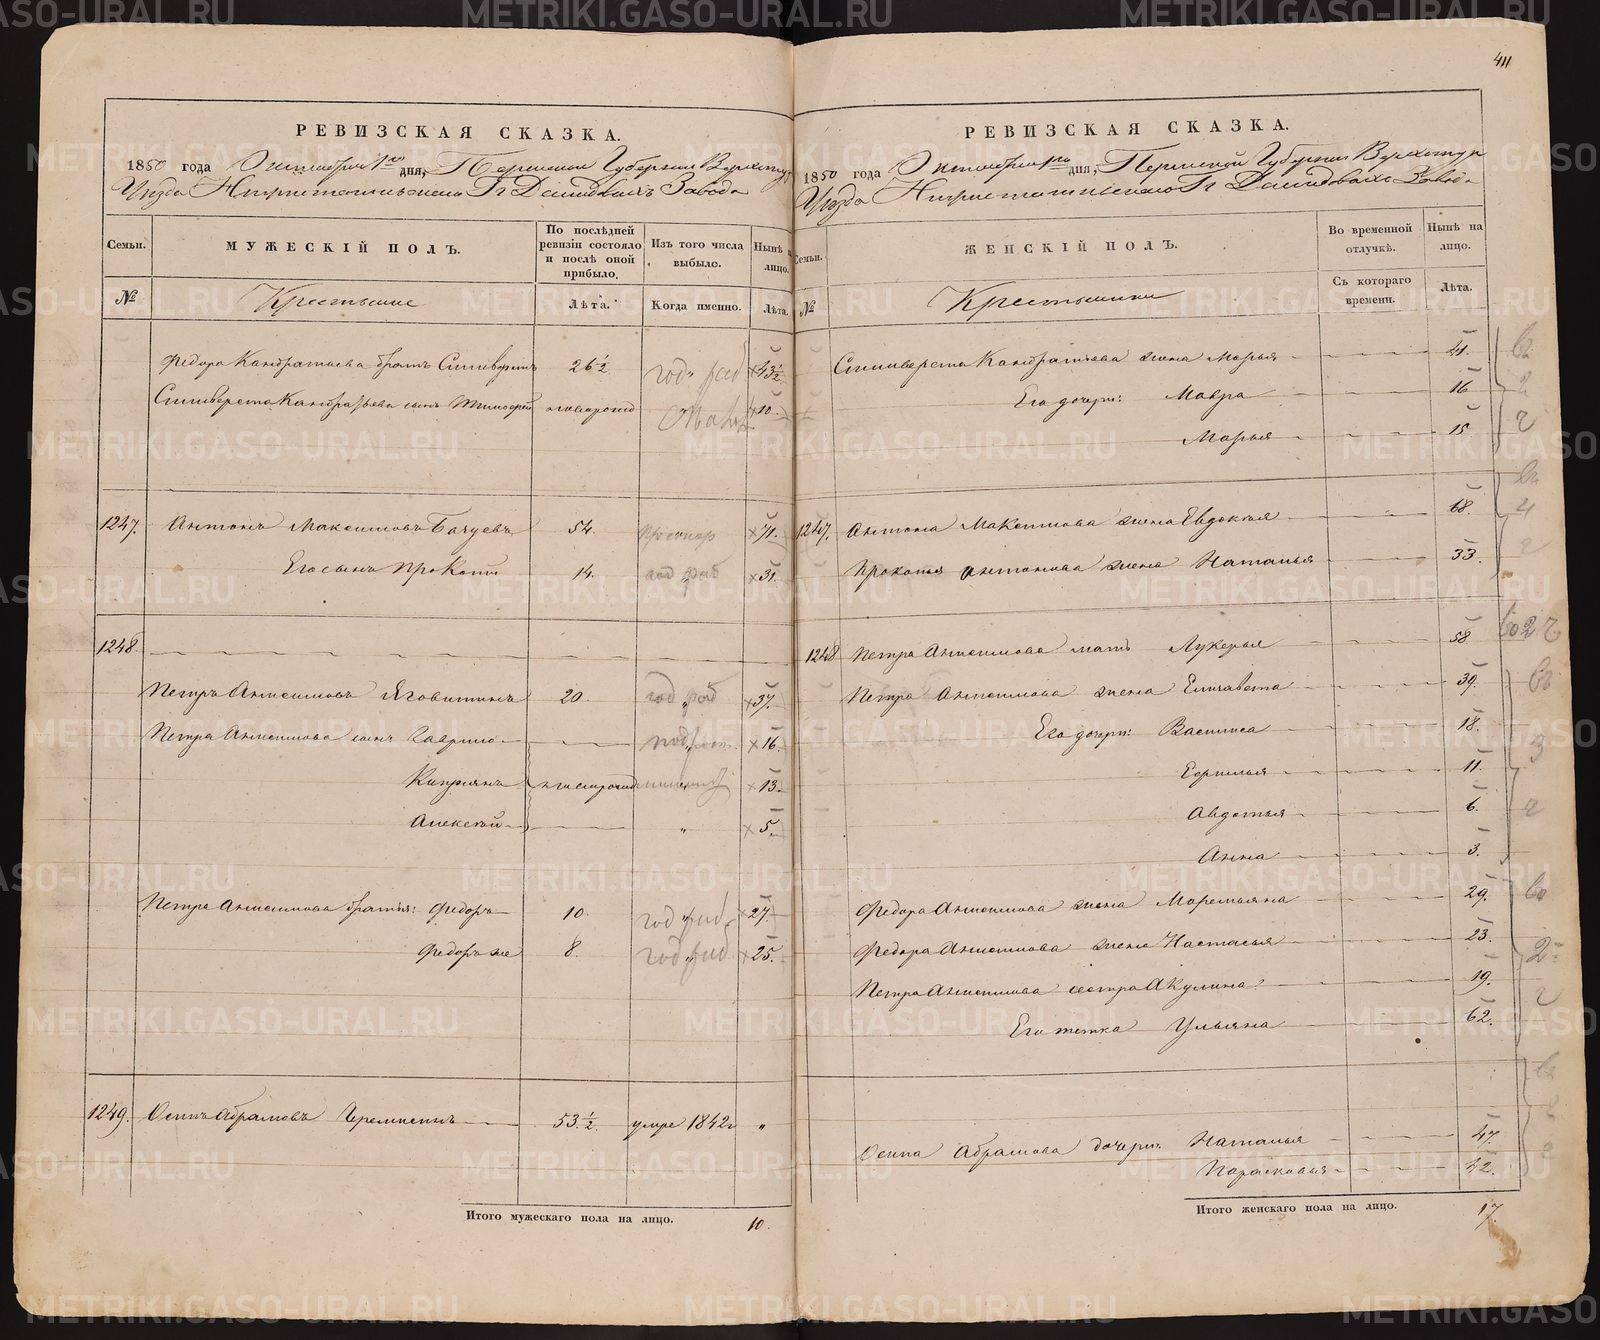 411
РЕВИЗСКАЯ СКАЗКА.
1850 года Октября 1го дня, Пермской Губернии Верхотур
Уезда Нижнетагильскаго Гг Демидовыхъ Завода
Семьи.
МУЖЕСКІЙ ПОЛЪ.
По послѣдней ревизіи состояло и послѣ оной прибыло.
Изъ того числа выбыло.
Нынѣ на лицо.
№
Крестьяне
Лѣта.
Когда именно.
Лѣта.
Федора Кандратьева братъ Силиверстъ 26½ 43½
Силиверста Кандратьева сынъ Тимофей новорожд 10
1247. Антонъ Максимовъ 54. 71.
Его сынъ Прокопій 14. 31.
1248.
Петръ Анисимовъ Яговитинъ 20. год раб 37.
Петра Анисимова сынъ Гаврило 16.
Кипріянъ 13.
Алексѣй 5.
Петра Анисимова братья: Федоръ 10. 27.
Федоръ же 8. 25.
1249. Осипъ Абрамовъ 53.½. умре 1842г "
Итого мужескаго пола на лицо. 10.
РЕВИЗСКАЯ СКАЗКА.
1850 года Октября 1го дня, Пермской Губерніи Верхотур
Уезда Нижнетагильскаго Гг Демидовыхъ Завода
Семьи.
ЖЕНСКІЙ ПОЛЪ.
Во временной отлучкѣ.
Нынѣ на лицо.
№
Крестьянки
Съ котораго времени.
Лѣта.
Силиверста Кандратьева жена Марья 41.
Его дочери: Мавра 16
Марья 15
1247. Антона Максимова жена Евдокія 68.
Прокопья Антонова жена Наталья 33.
1248 Петра Анисимова мать Лукерья 58
Петра Анисимова жена Елизавета 39.
Его дочери: Василиса 18.
11.
Авдотья 6.
Анна 3.
Федора Анисимова жена Маремьяна 29.
Федора Анисимова жена Настасья 23.
Петра Анисимова сестра Акулина 19.
Его тетка Ульяна 62.
Осипа Абрамова дочери: Наталья 47.
Парасковья 42.
Итого женскаго пола на лицо. 17.
METRIKI.GASO-URAL.RU